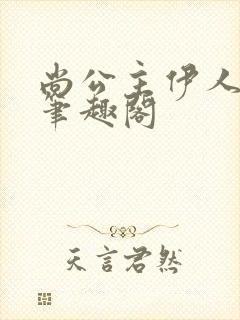 尚公主伊人
笔趣阁
天言君然